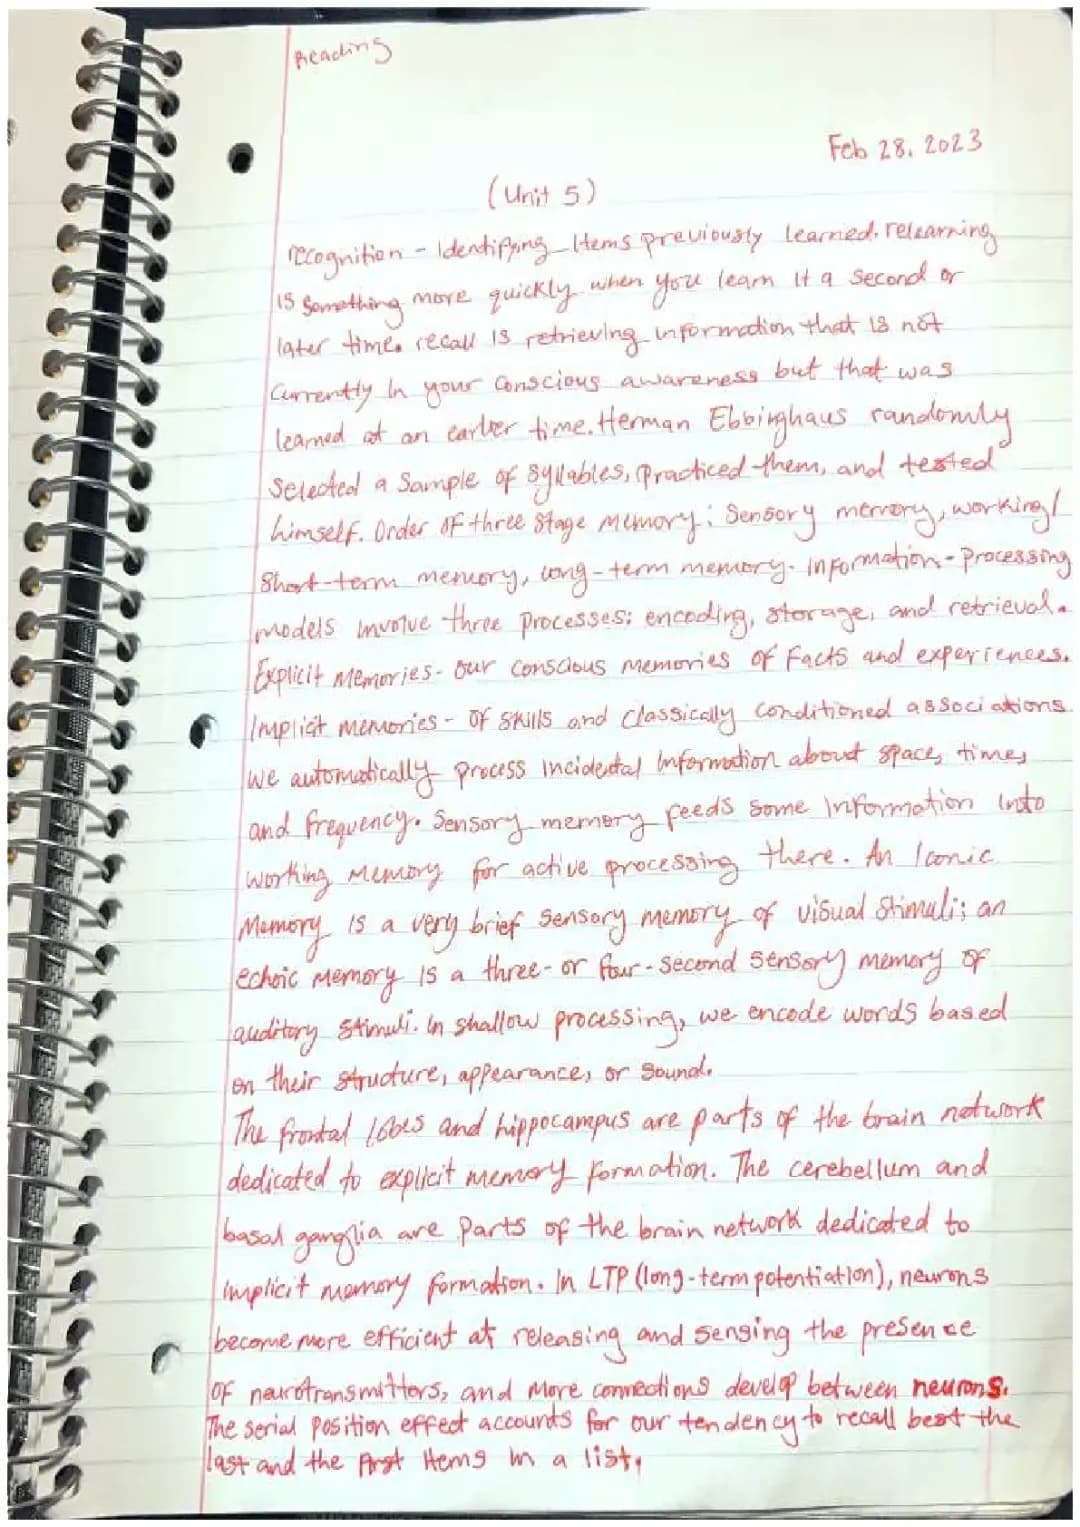 Reading
Feb 28. 2023
(Unit 5)
recognition - Identifying Items previously learned. relearning
is something more quickly when you learn it a second or
later time. recall is retrieving information that is not
Currently in your conscious awareness but that was
learned at an earlier time. Herman Ebbinghaus randomly
selected a Sample of syllables, practiced them, and tested
himself. Order of three stage memory: Sensory memory, working/
Short-term memory, long-term memory. Information-processing
models involve three processes: encoding, storage, and retrieval.
Explicit memories - our conscious memories of facts and experiences.
Implicit memories - of skills and classically conditioned associations
we automatically process incidental information about space, times,
and frequency. Sensory memory feeds some information into
working memory for active processing there. An Iconic
Memory is a very brief sensory memory of visual stimuli; an
echoic memory is a three- or four-second sensory memory of
auditory stimuli. In shallow processing, we encode words based
on their structure, appearance, or sound.
The frontal lobes and hippocampus are parts of the brain network
dedicated to explicit memory formation. The cerebellum and
basal ganglia are parts of the brain network dedicated to
implicit memory formation. In LTP (long-term potentiation), neurons
become more efficient at releasing and sensing the presence
of neurotransmitters, and more connections develop between neurons.
The serial position effect accounts for our tendency to recall best the
last and the first items in a list.